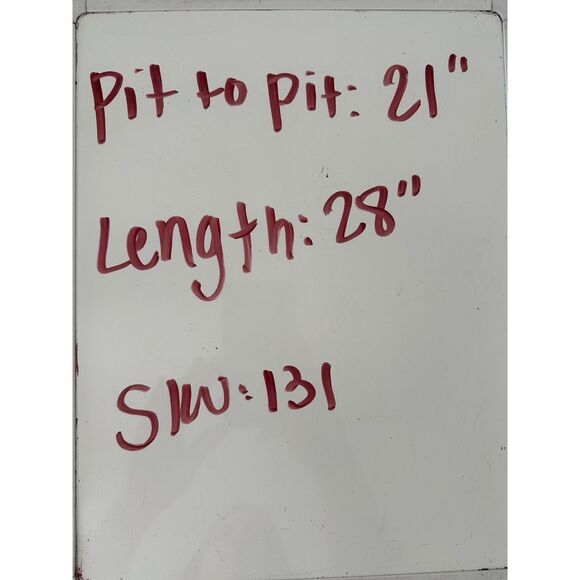 Pit to pit: 21"
Length: 28"
SKU: 131